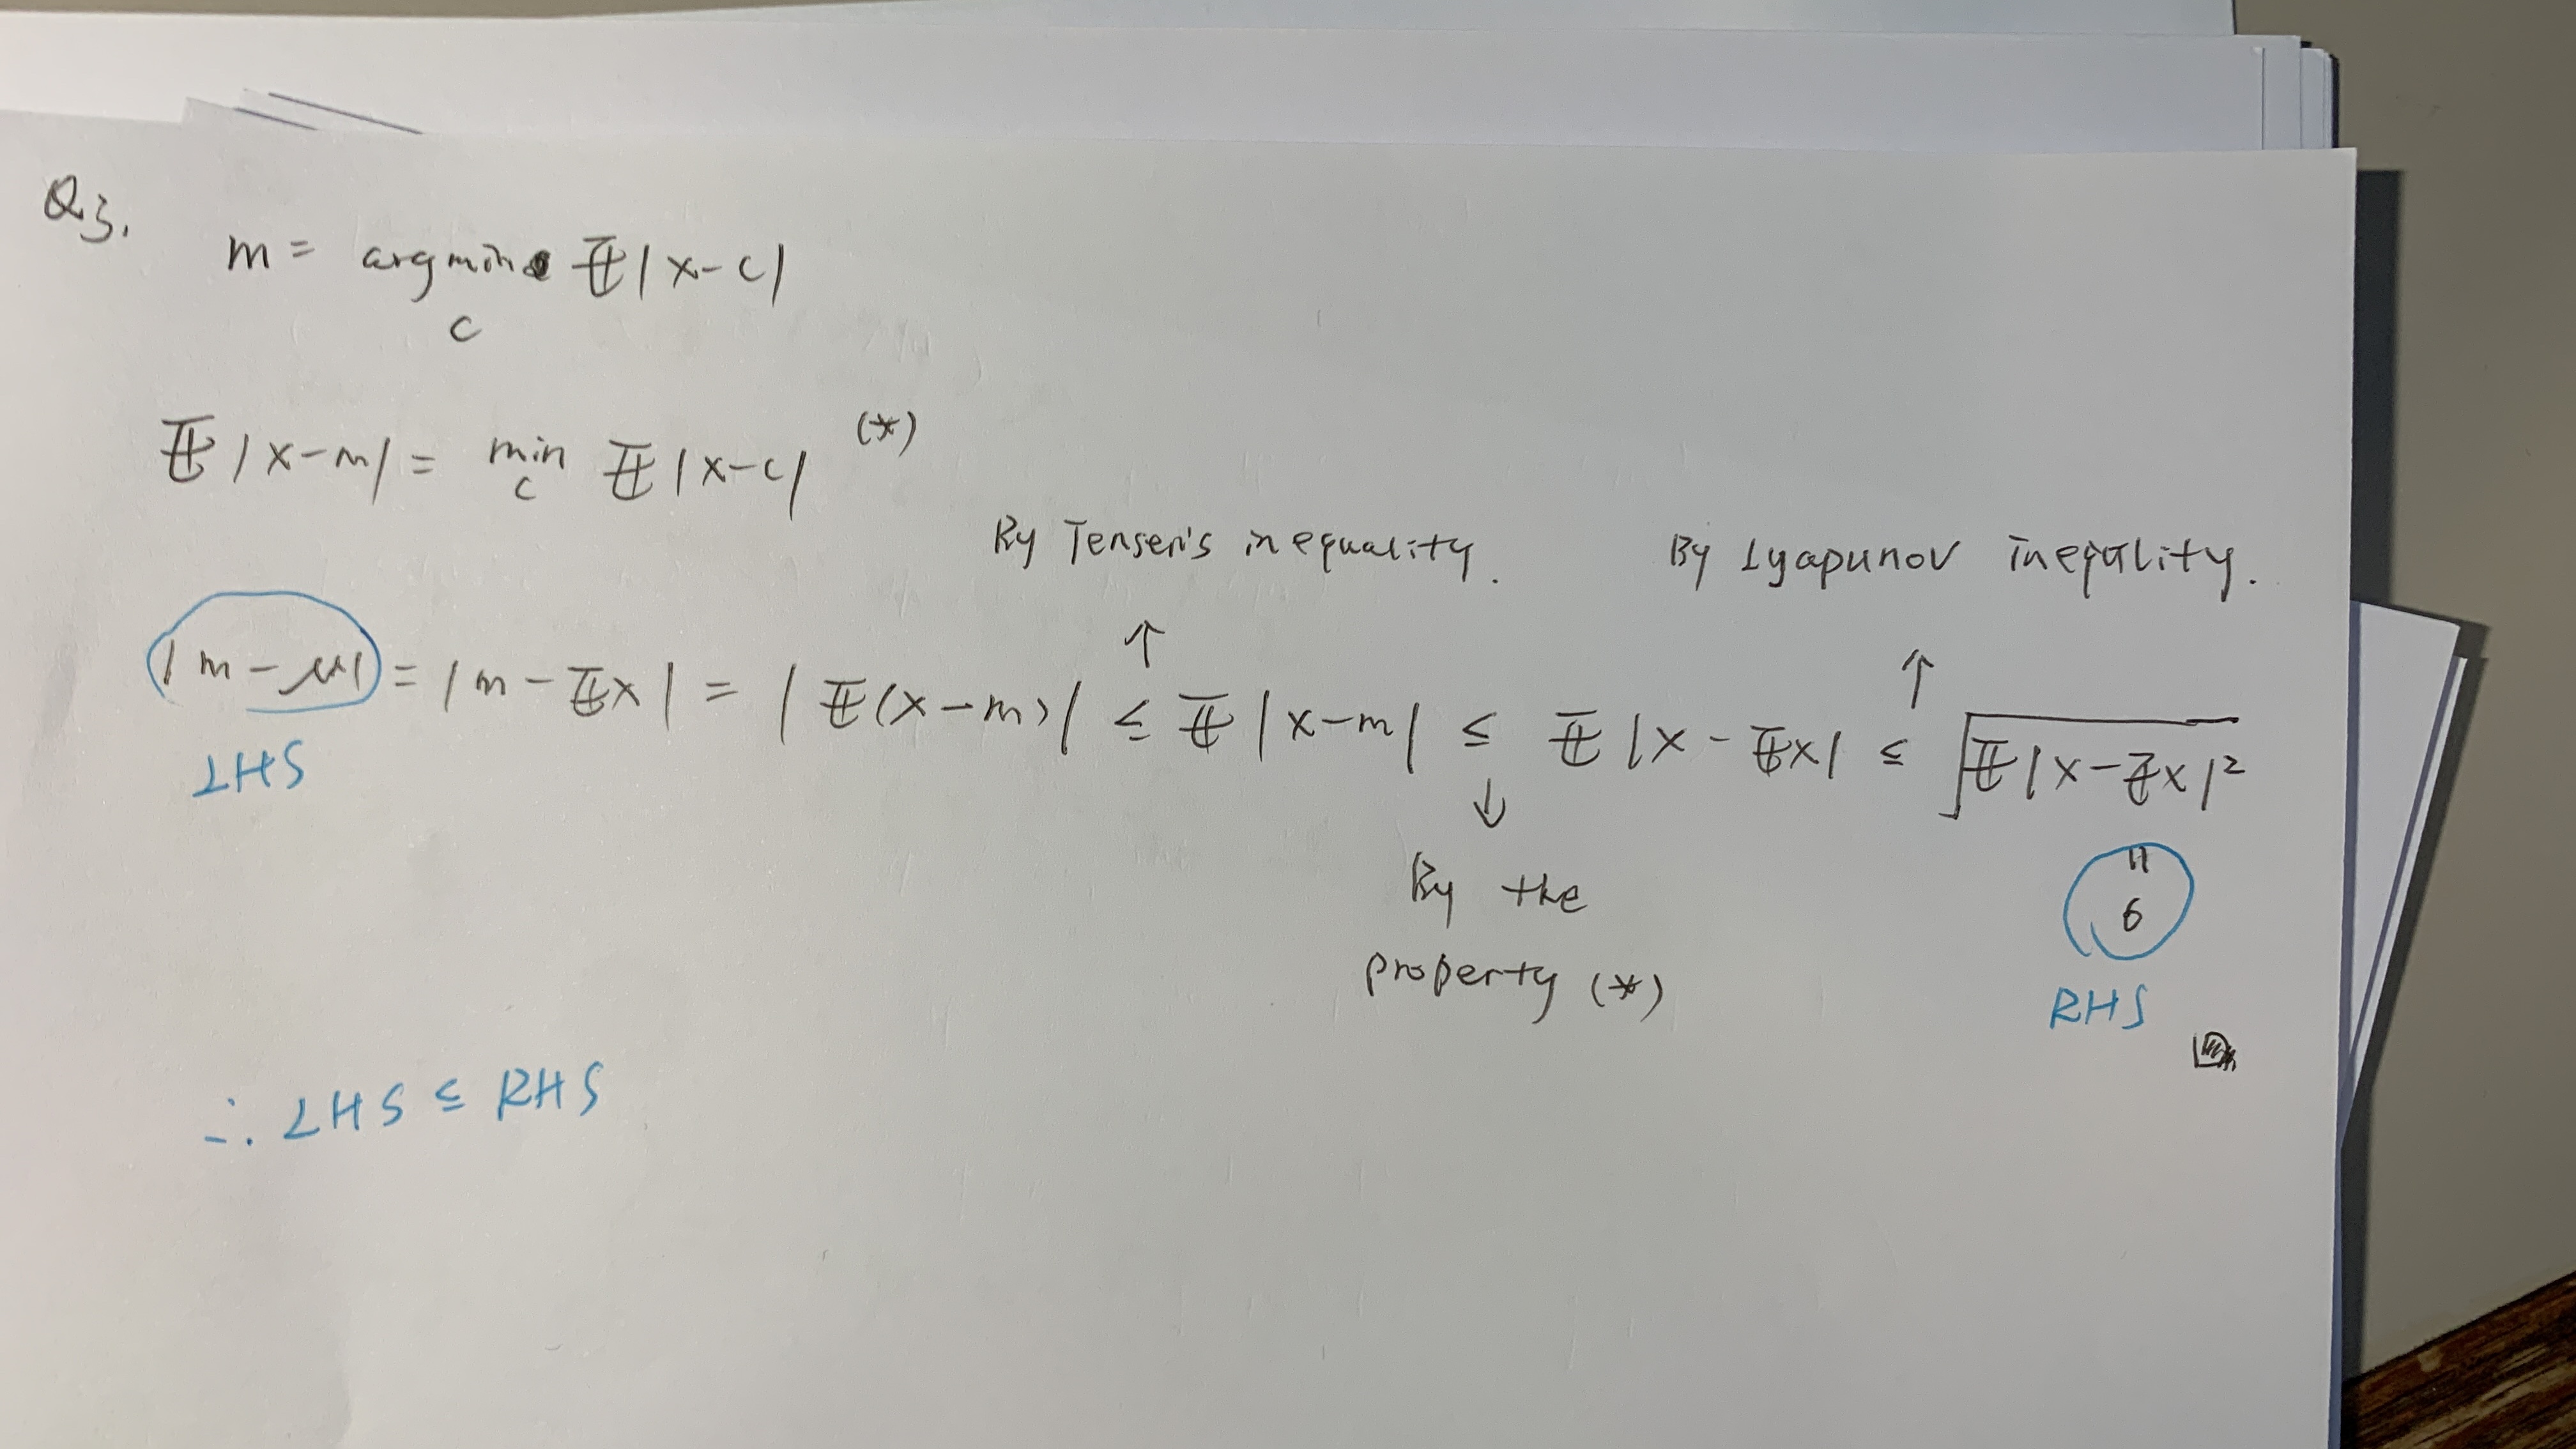 Q3.
m = argmin 𝔼|x-c|
c
𝔼|x-m| = min 𝔼|x-c| (*)
c
By Jensen's inequality.
By Lyapunov ineqality.
↑
↑
|m-μ| = |m-𝔼x| = |𝔼(x-m)| ≤ 𝔼|x-m| ≤ 𝔼|x-𝔼x| ≤ √𝔼|x-𝔼x|²
LHS
↓
By the
property (*)
=
σ
RHS
∴ LHS ≤ RHS